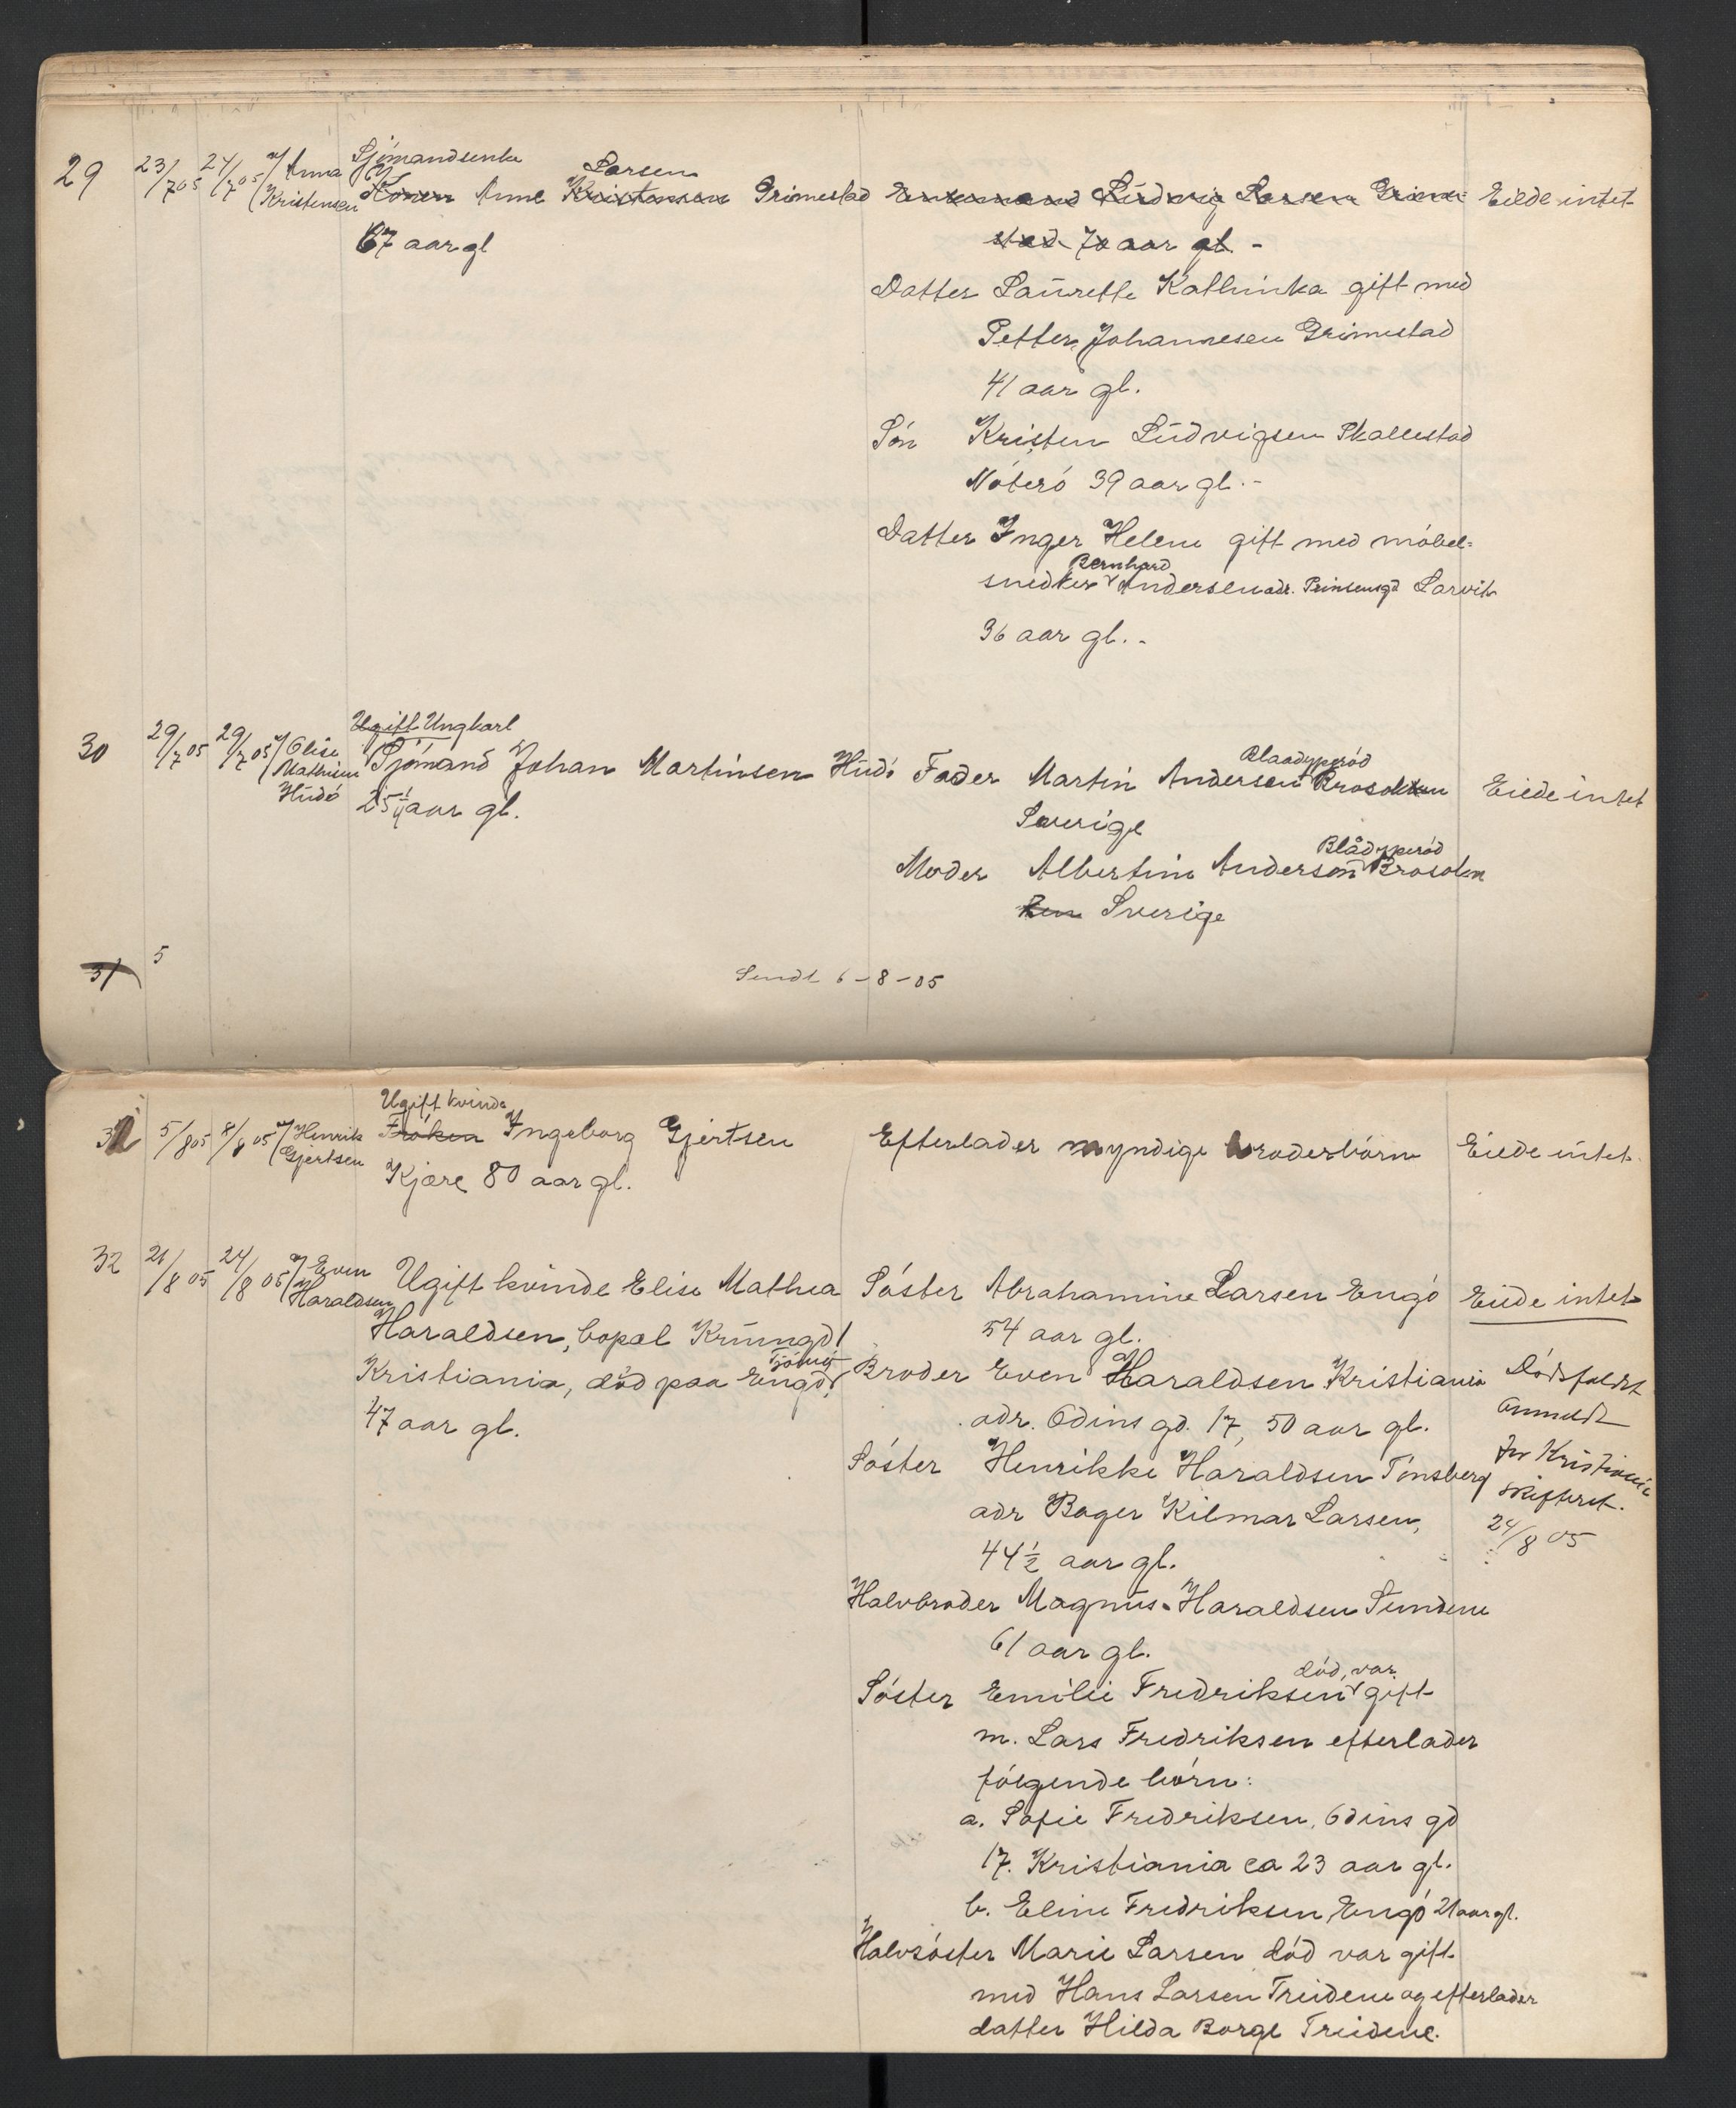 29 23/7 05 24/7 05 Anna Kristensen
Sjømandsenke Larsen
Konen Anne Kristensen Grimestad
67 aar gl
Enkemand Ludvig Larsen Grime-
stad 70 aar gl. -
Eiede intet
Datter Laurette Kathinka gift med
Petter Johannesen Grimestad
41 aar gl.
Søn Kristen Ludvigsen Skallestad
Nøterø 39 aar gl. -
Datter Inger Helene gift med møbel-
Bernhard
snedker Andersen adr. Prinsensgd Larvik
36 aar gl. -
30 29/7 05 29/7 05 Olise Mathisen Hudø
Ugift Ungkarl
Sjømand Johan Martinsen Hudø
25 1/4 aar gl.
Blaadyperød
Fader Martin Andersen Brosoken
Sverige
Eiede intet
Blådyperød
Moder Albertine Anderson Brosoken
ken Sverige
31 5
Sendt 6-8-05
31 5/8 05 8/8 05 Henrik Gjertsen
Ugift kvinde
Frøken Ingeborg Gjertsen
Kjære 80 aar gl.
Efterlader myndige broderbørn
Eiede intet
32 21/8 05 24/8 05 Even Haraldsen
Ugift kvinde Elise Mathea
Haraldsen, bopæl
Kristiania, død paa Engø, Tjømø
47 aar gl.
Søster Abrahamine Larsen Engø
54 aar gl.
Eiede intet
Broder Even Haraldsen Kristiania
adr. Odins gd. 17, 50 aar gl.
Dødsfaldet
anmeldt
for Kristiania
skifteret.
24/8 05
Søster Henrikke Haraldsen Tønsberg
adr Bager Kilmar Larsen,
44 1/2 aar gl.
Halvbroder Magnus Haraldsen Sundene
61 aar gl.
død, var
Søster Emilie Fredriksen gift
m. Lars Fredriksen efterlader
følgende børn:
a. Sofie Fredriksen, Odins gd
17. Kristiania ca 23 aar gl.
b. Eline Fredriksen, Engø 21 aar gl.
Halvsøster Marie Larsen død var gift
med Hans Larsen Treidene og efterlader
datter Hilda Borge Treidene.